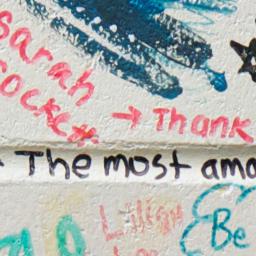 Sarah
Cocket
→ Thank
The most ama
Lillian
Be